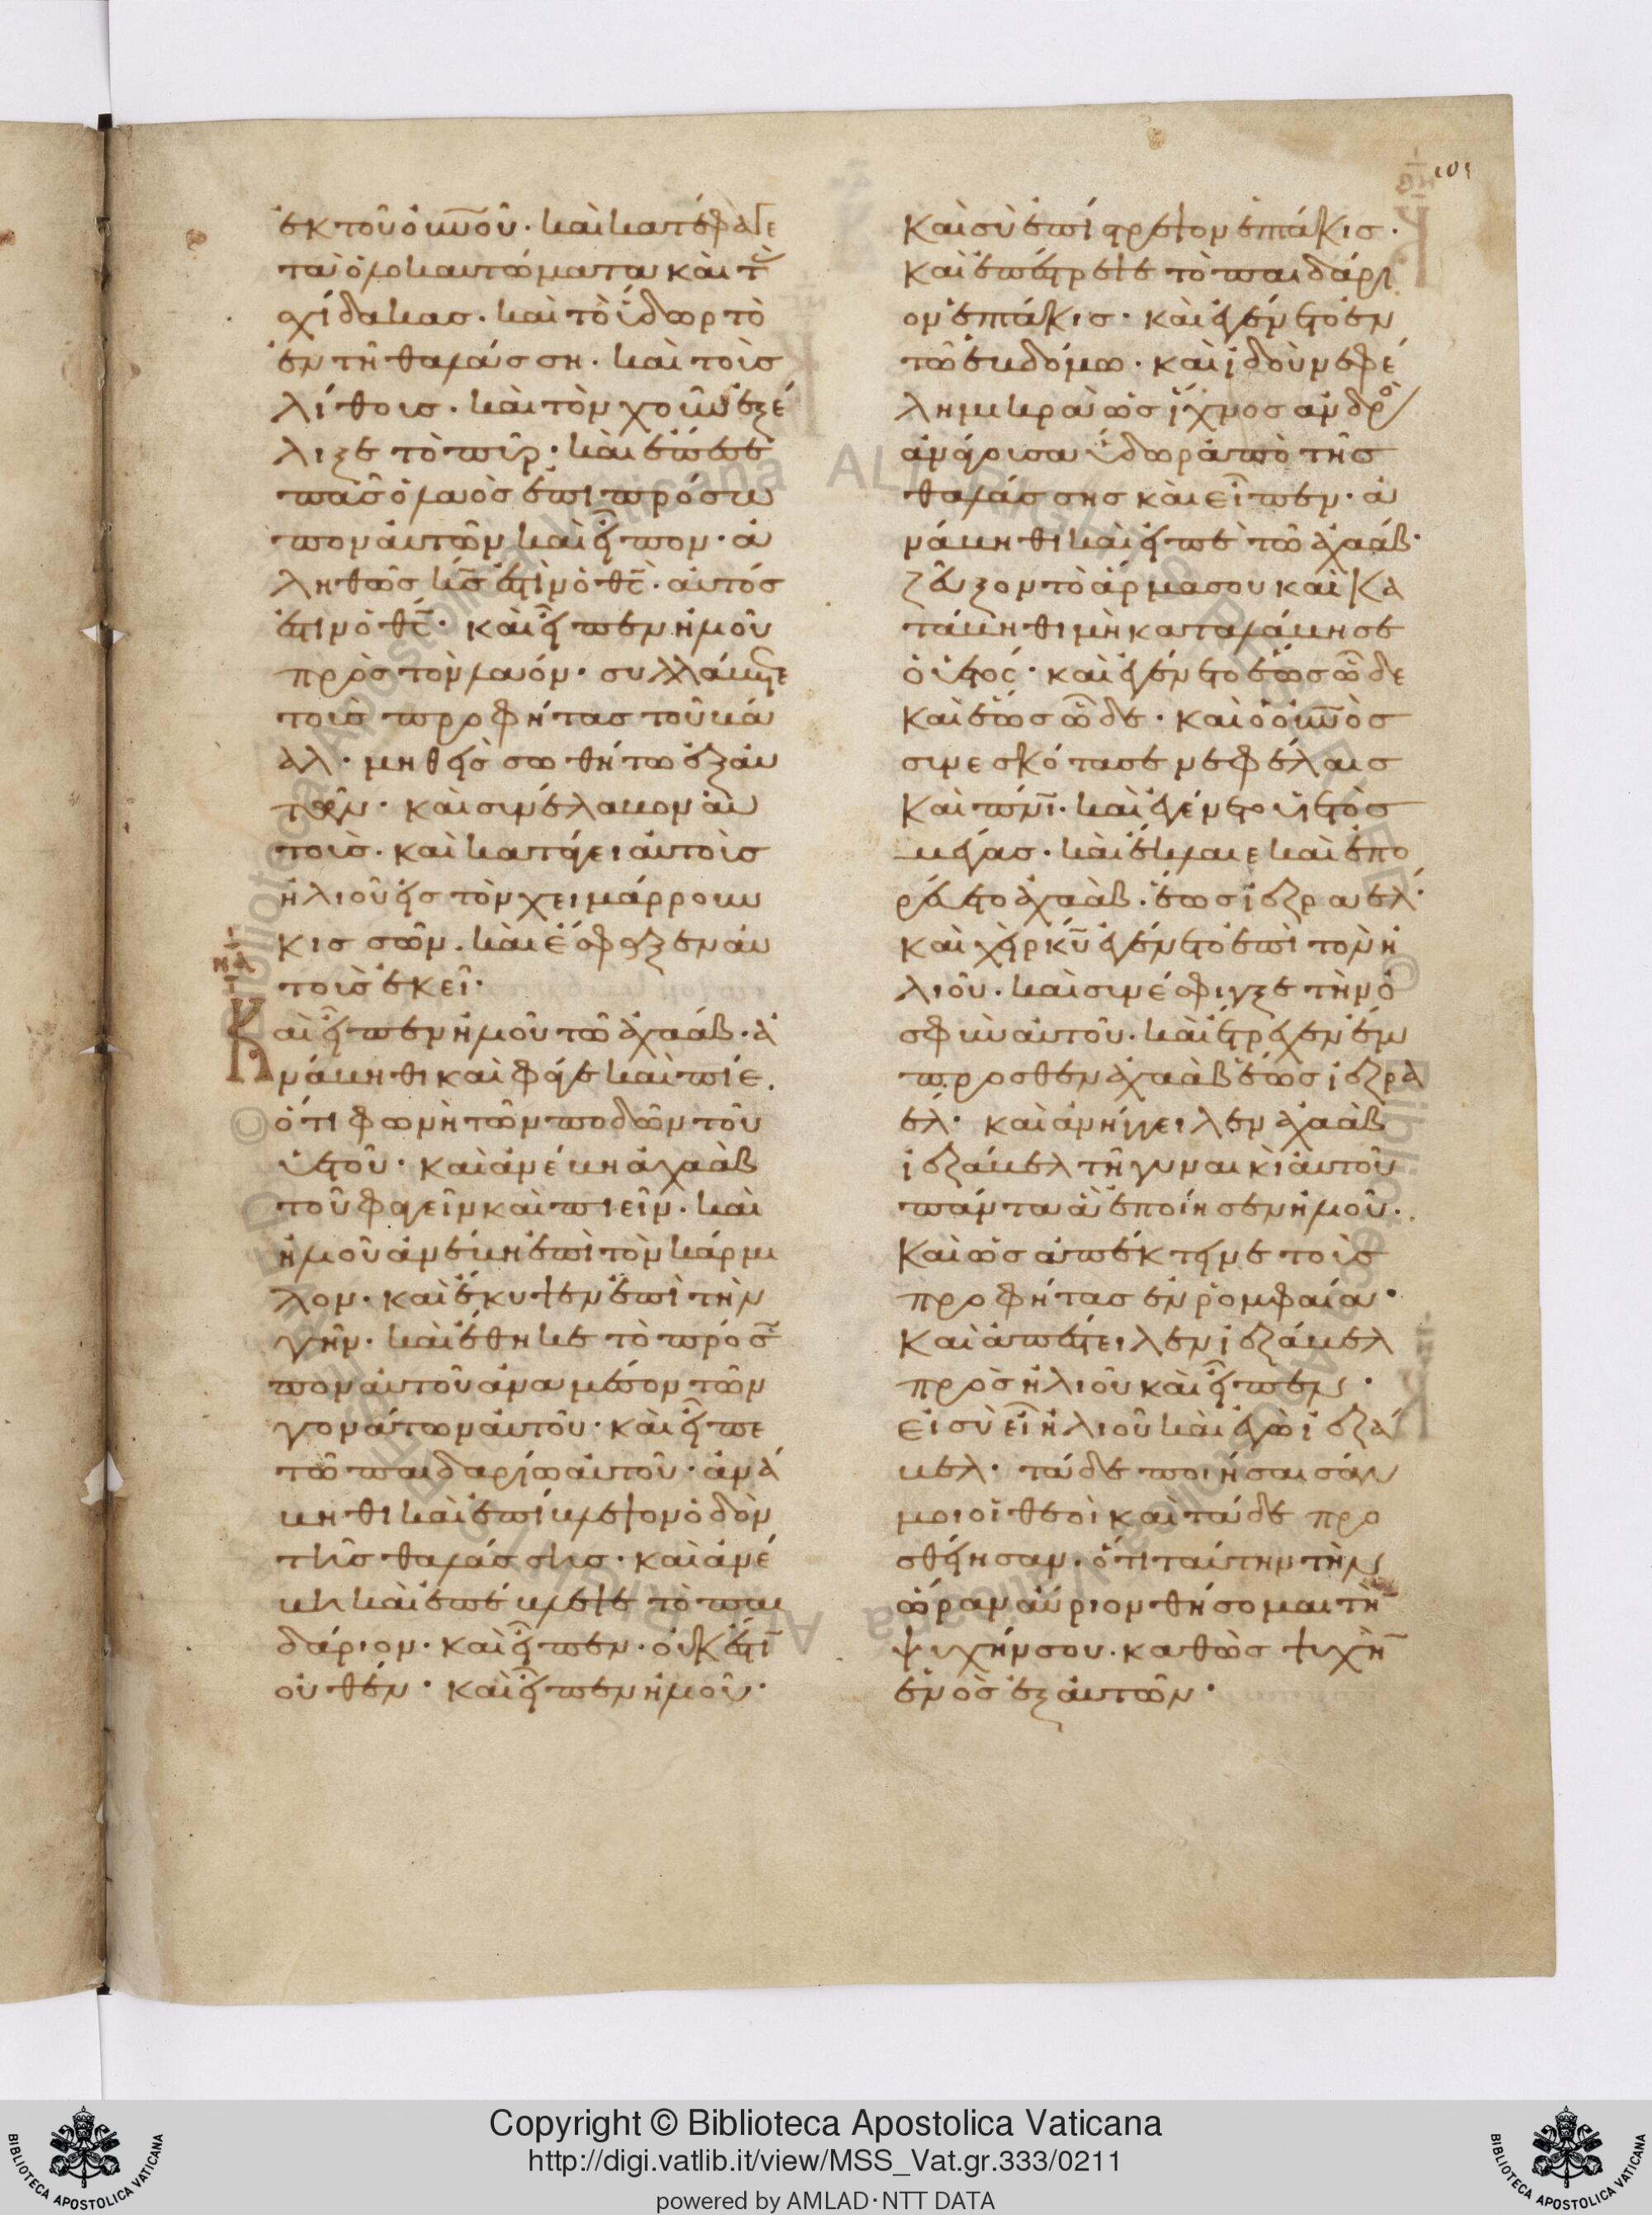 101
ἐκ τοῦ οὐνοῦ· καὶ κατέφαγε
τὰ ὁλοκαυτώματα καὶ τὰς
σχίδακας· καὶ τὸ ὕδωρ τὸ
ἐν τῆ θαλάσση· καὶ τοὺς
λίθους· καὶ τὸν χοῦν ἐξέ
λιξε τὸ πῦρ· καὶ ἔπεσε
πᾶς ὁ λαὸς ἐπι πρόσω
πον αὐτῶν καὶ εἶπον· ἀ
ληθῶς κ̅ς̅ ἐστὶν ὁ θ̅ς̅· αὐτός
ἐστιν ὁ θ̅ς̅· καὶ εἶπεν ἠλιοῦ
πρὸς τὸν λαόν· συλλάβετε
τοὺς προφήτας τοῦ βά
αλ· μηθεὶς σωθήτω ἐξ αὐ
τῶν· καὶ συνέλαβον αὐ
τοὺς· καὶ κατάγει αὐτοὺς
ἠλιοῦ εἰς τὸν χειμάρρουν
κισσῶν· καὶ ἔσφαξεν αὐ
τοὺς ἐκεῖ·
Καὶ εἶπεν ἠλιοῦ τῶ ἀχαάβ· ἀ
νάβηθι καὶ φάγε καὶ πίε·
ὅτι φωνὴ τῶν ποδῶν τοῦ
ὑετοῦ· καὶ ἀνέβη ἀχαὰβ
τοῦ φαγεῖν καὶ πιεῖν· καὶ
ἠλιοῦ ἀνέβη ἐπὶ τὸν κάρμη
λον· καὶ ἔκυψεν ἐπὶ τὴν
γῆν· καὶ ἔθηκε τὸ πρόσω
πον αὐτοῦ ἀνα μέσον τῶν
γονάτων αὐτοῦ· καὶ εἶπε
τῶ παιδαρίω αὐτοῦ· ἀνά
βηθι καὶ ἐπίβλεψον ὁδὸν
τῆς θαλάσσης· καὶ ἀνέ
βη καὶ ἐπέβλεψε τὸ παι
δάριον· καὶ εἶπεν· οὐκ ἔστιν
οὐθέν· καὶ εἶπεν ἠλιοῦ·
Καὶ σὺ ἐπίστρεψον ἑπτάκις·
καὶ ἐπέστρεψε τὸ παιδάρι
ον ἑπτάκις· καὶ ἐγένετο ἐν
τῶ ἑβδόμω· καὶ ἰδοὺ νεφέ
λη μικρὰ ὡς ἴχνος ἀνδρὸς
ἀνάγουσα ὕδωρ ἀπὸ τῆς
θαλάσσης καὶ εἶπεν· ἀ
νάβηθι καὶ εἰπὲ τῶ ἀχαάβ·
ζεῦξον τὸ ἅρμα σου καὶ κα
τάβηθι μὴ καταλάβη σε
ὁ ὑετός· καὶ ἐγένετο ἕως ὧδε
καὶ ἕως ὧδε· καὶ ὁ οὐνὸς
συνεσκότασε νεφέλαις
καὶ πν̅ι̅· καὶ ἐγένετο ὑετὸς
μέγας· καὶ ἔκλαιε καὶ ἐπο
ρεύετο ἀχαὰβ· ἕως ἰεζραελ·
καὶ χεὶρ κ̅υ̅ ἐγένετο ἐπὶ τὸν ἠ
λιοῦ· καὶ συνέσφιγξε τὴν ὀ
σφὺν αὐτοῦ· καὶ ἔτρεχεν ἔμ
προσθεν ἀχαὰβ ἕως ἰεζρα
ελ· καὶ ἀνήγγειλεν ἀχαὰβ
ἰεζάβελ τῆ γυναικὶ αὐτοῦ
πάντα ἃ ἐποίησεν ἠλιοῦ·
Καὶ ὡς ἀπέκτεινε τοὺς
προφήτας ἐν ῥομφαία·
Καὶ ἀπέστειλεν ἰεζάβελ
πρὸς ἠλιοῦ καὶ εἶπεν·
εἰ σὺ εἶ ἠλιοῦ καὶ ἐγὼ ἰεζά
βελ· τάδε ποιήσαισάν
μοι οἱ θεοὶ καὶ τάδε προ
σθείησαν· ὅτι ταύτην τὴν
ὥραν αὔριον θήσομαι τὴν
ψυχήν σου· καθὼς ψυχὴν
ἑνὸς ἐξ αὐτῶν·
Copyright © Biblioteca Apostolica Vaticana
http://digi.vatlib.it/view/MSS_Vat.gr.333/0211
powered by AMLAD·NTT DATA
BIBLIOTECA APOSTOLICA VATICANA
BIBLIOTECA APOSTOLICA VATICANA